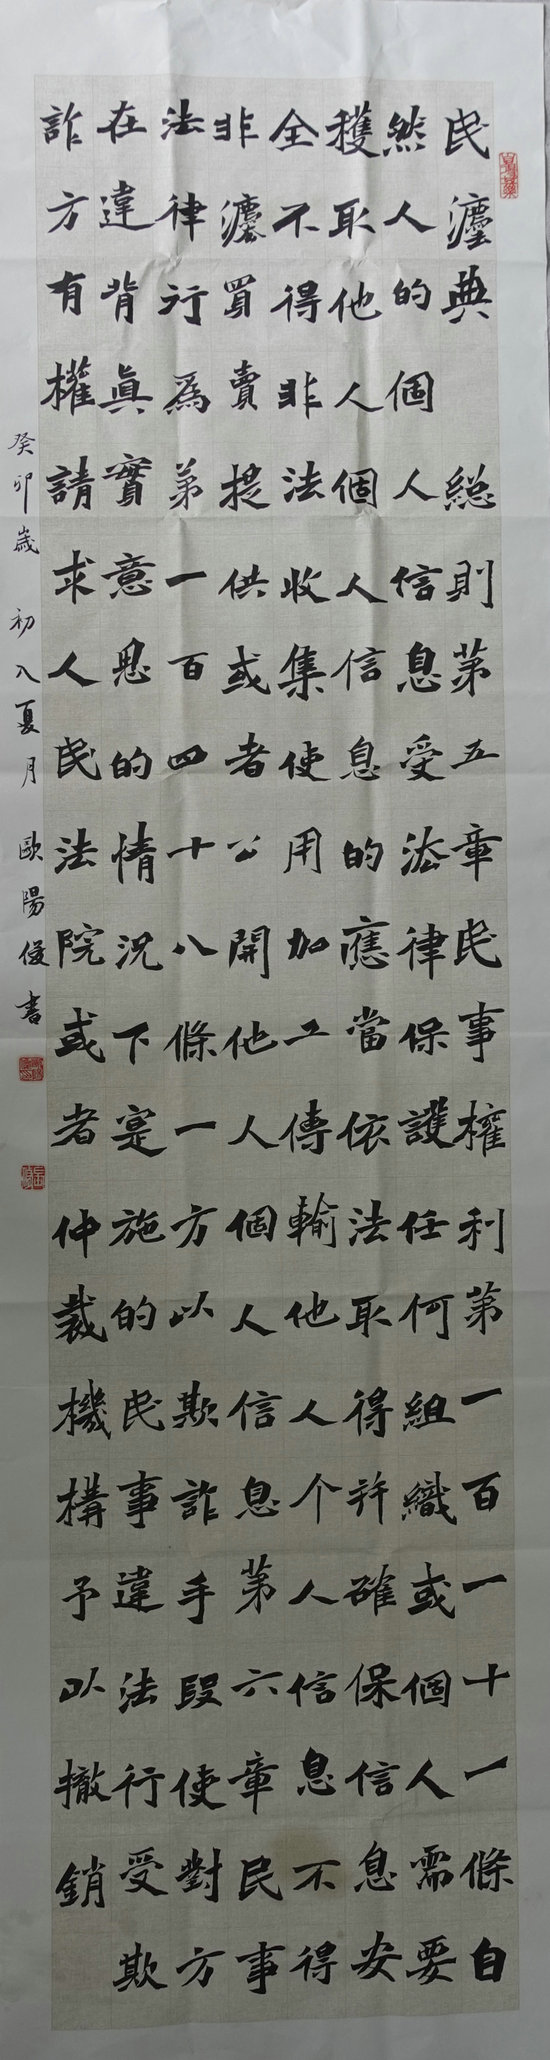 民灋典 総則第五章民事權利第一百一十一條自
然人的個人信息受法律保護任何組織或個人需要
穫取他人個人信息的應當依法取得并確保信息安
全不得非法收集使用加工傳輸他人个人信息不得
非灋買賣提供或者公開他人個人信息第六章民事
法律行爲第一百四十八條一方以欺詐手段使對方
在違背眞實意思的情況下寔施的民事違法行受欺
詐方有權請求人民法院或者仲裁機構予以轍銷
癸卯歲 初入夏月 歐陽俊書